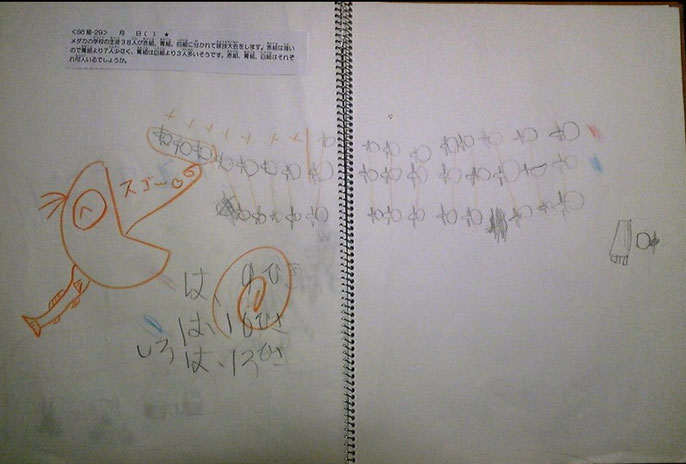 <96級-29>　月　日( )　★
メダカの学校の生徒38人が赤組、青組、白組に分かれて球技大会をします。赤組は強い
ので青組より7人少なく、青組は白組より3人多いそうです。赤組、青組、白組はそれぞ
れ何人いるでしょうか。
スゴーい
は、9ひき
は、16ひき
しろは、13ひき